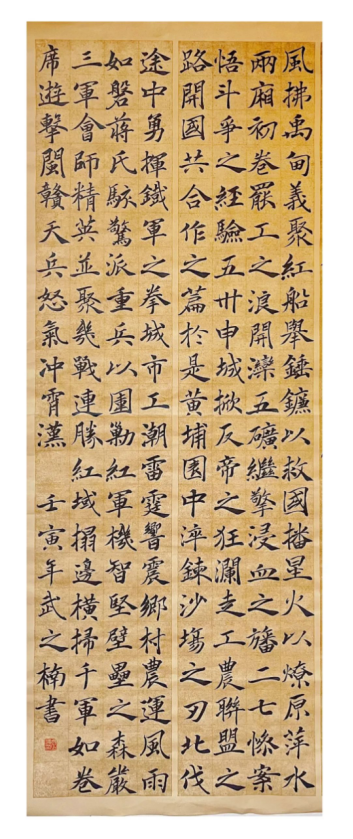 風拂禹甸義聚紅船舉錘鐮以救國播星火以燎原萍水
兩廂初卷罷工之浪開灤五礦繼擎浸血之旛二七慘案
悟斗爭之經驗五卅申城掀反帝之狂瀾走工農聯盟之
路開國共合作之篇於是黃埔園中淬鍊沙場之刃北伐
途中勇揮鐵軍之拳城市工潮雷霆響震鄉村農運風雨
如磐蔣氏駭驚派重兵以圍勦紅軍機智堅壁壘之森嚴
三軍會師精英並聚幾戰連勝紅域搨邊橫掃千軍如卷
席遊擊閩贛天兵怒氣冲霄漢 壬寅年武之楠書